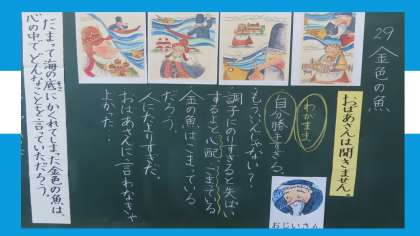 29 金色の魚
おばあさんは聞きません。
わがまま
自分勝手すぎる。
もういいんじゃない?
調子にのりすぎると失ぱい
するよと心配、こまっている
金の魚はこまっている
だろう。
人にたよりすぎだ。
おばあさんに言わなきゃ
よかった…
おじいさん
だまって海の底にかくれてしまった金色の魚は、
心の中でどんなことを言っていただろう。